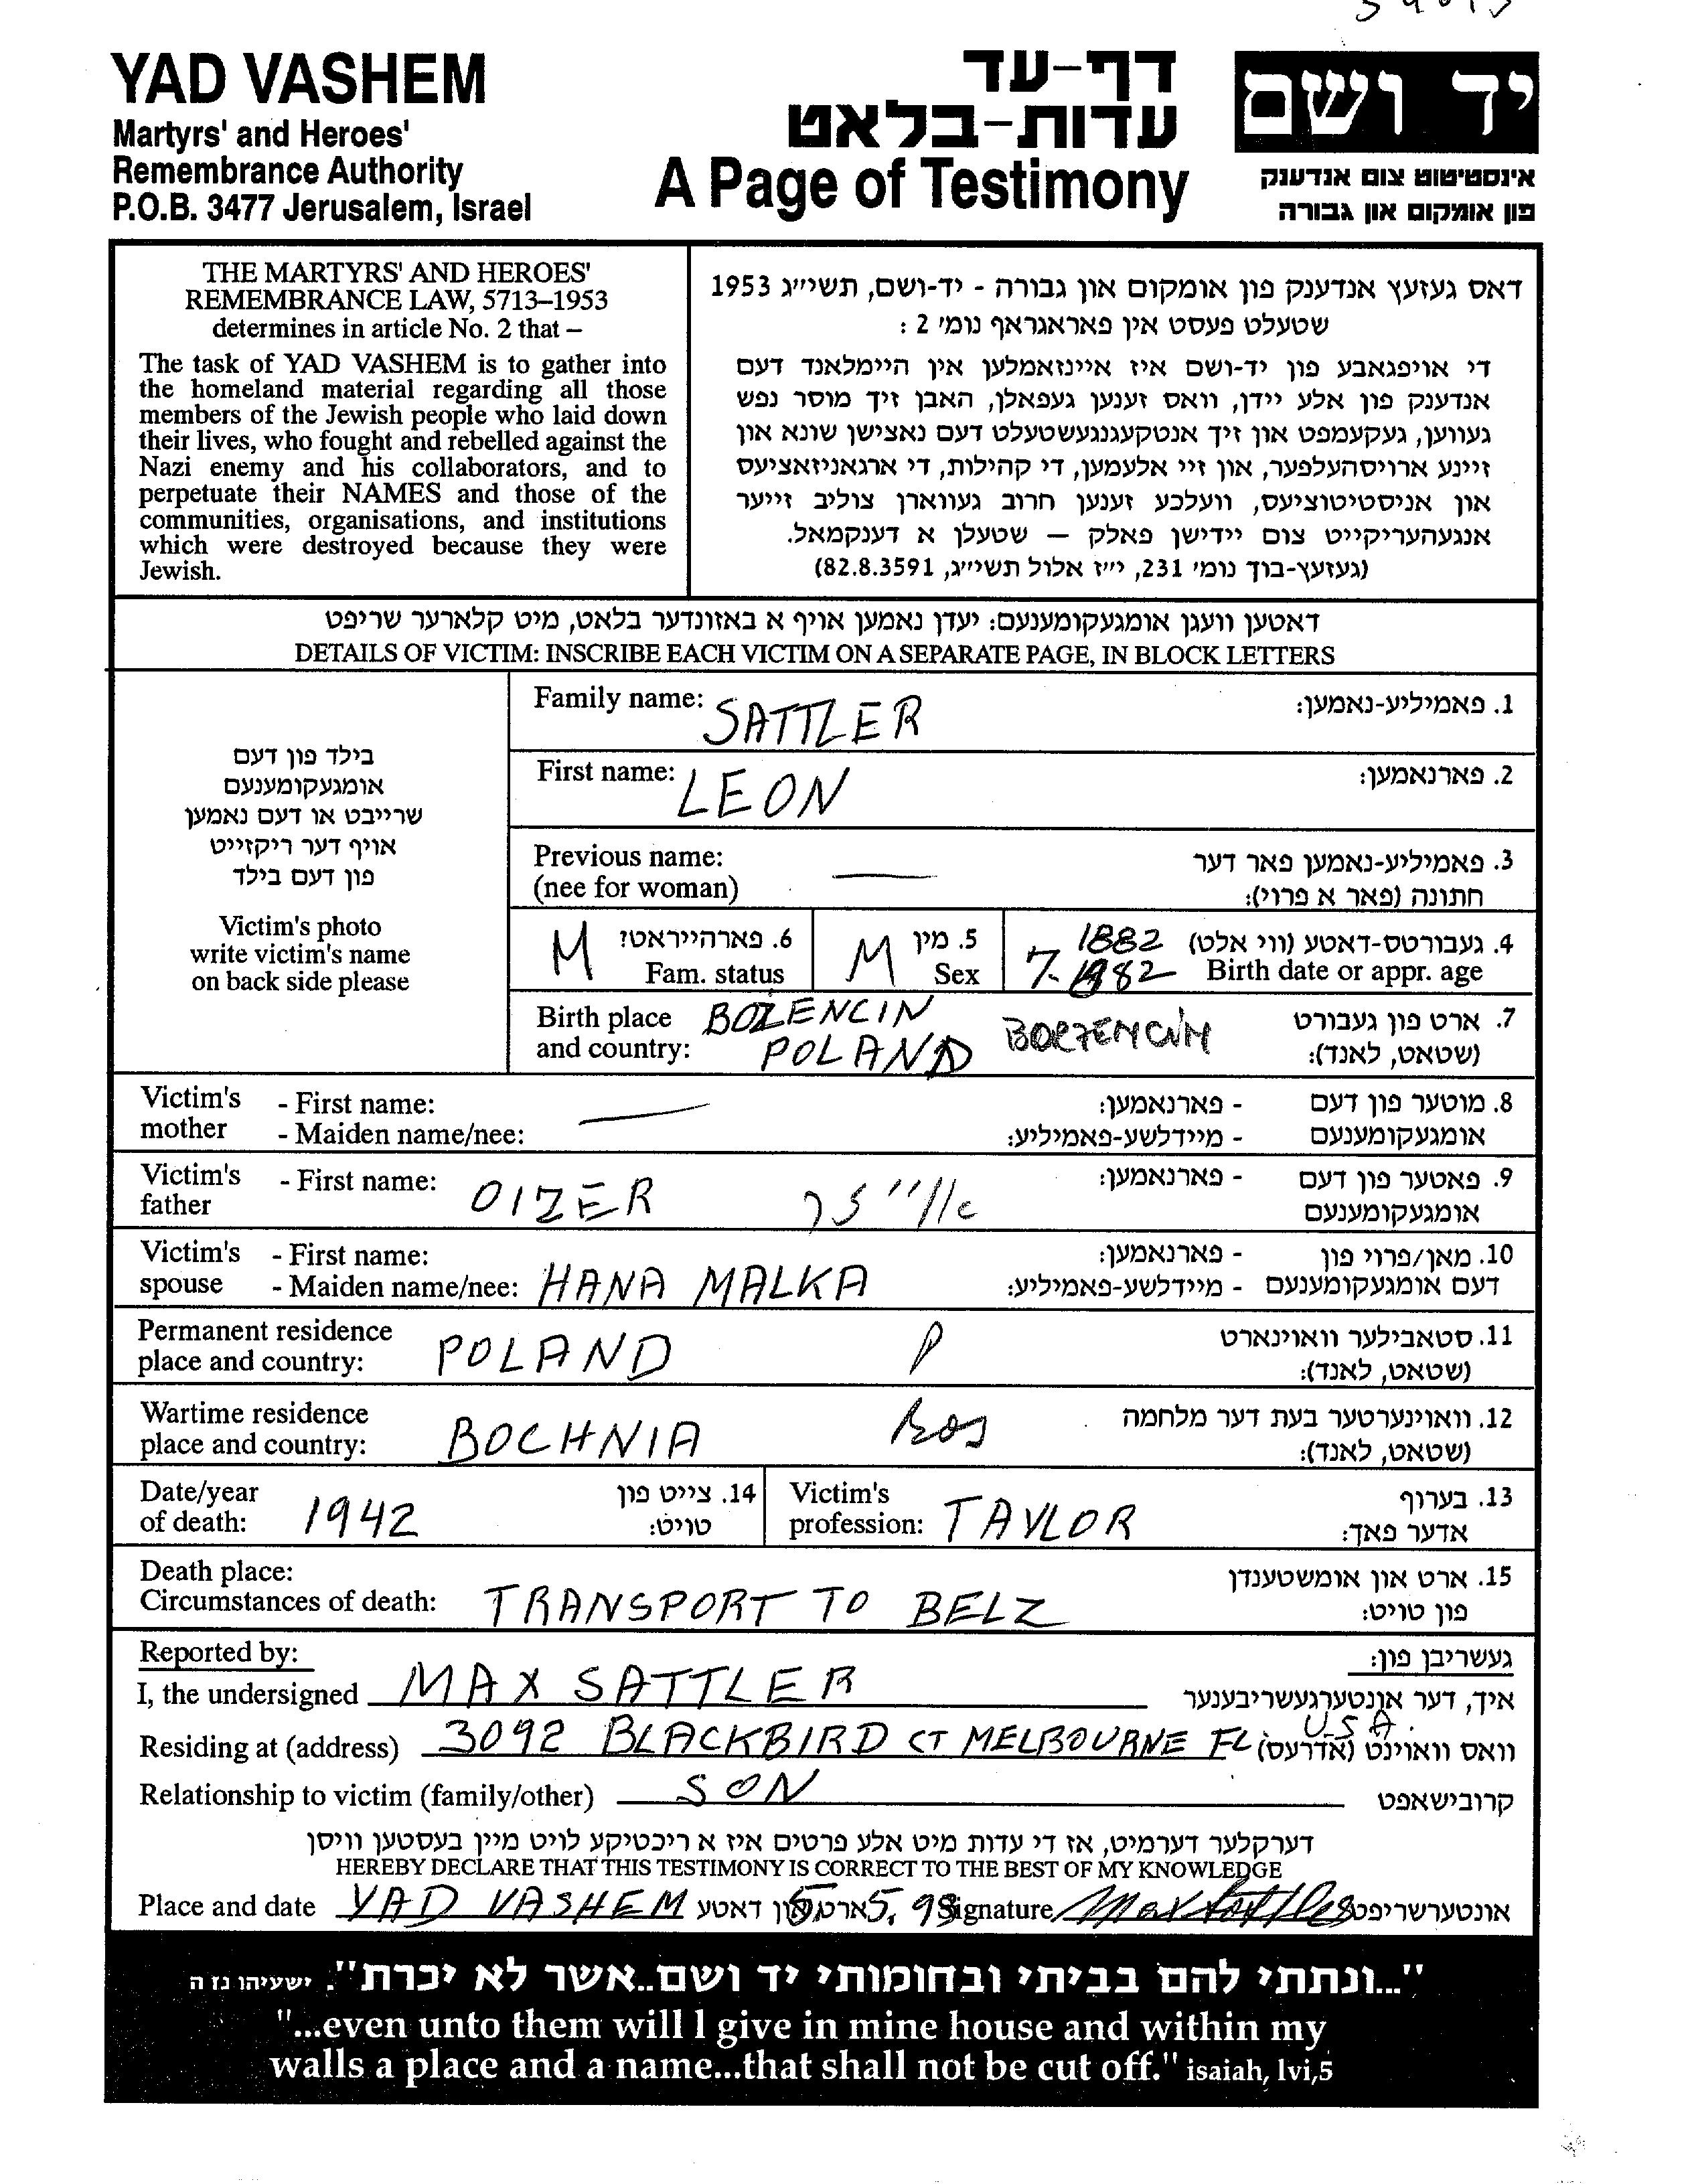 YAD VASHEM
Martyrs' and Heroes'
Remembrance Authority
P.O.B. 3477 Jerusalem, Israel
דף-עד
עדות-בלאט
A Page of Testimony
יד ושם
אינסטיטוט צום אנדענק
פון אומקום און גבורה
THE MARTYRS' AND HEROES'
REMEMBRANCE LAW, 5713–1953
determines in article No. 2 that –
The task of YAD VASHEM is to gather into
the homeland material regarding all those
members of the Jewish people who laid down
their lives, who fought and rebelled against the
Nazi enemy and his collaborators, and to
perpetuate their NAMES and those of the
communities, organisations, and institutions
which were destroyed because they were
Jewish.
דאס געזעץ אנדענק פון אומקום און גבורה - יד-ושם, תשי״ג 1953
שטעלט פעסט אין פאראגראף נומ׳ 2 :
די אויפגאבע פון יד-ושם איז איינזאמלען אין היימלאנד דעם
אנדענק פון אלע יידן, וואס זענען געפאלן, האבן זיך מוסר נפש
געווען, געקעמפט און זיך אנטקעגנגעשטעלט דעם נאצישן שונא און
זיינע ארויסהעלפער, און זיי אלעמען, די קהילות, די ארגאניזאציעס
און אניסטיטוציעס, וועלכע זענען חרוב געווארן צוליב זייער
אנגעהעריקייט צום יידישן פאלק – שטעלן א דענקמאל.
(געזעץ-בוך נומ׳ 231, י״ז אלול תשי״ג, 82.8.3591)
דאטען וועגן אומגעקומענעם: יעדן נאמען אויף א באזונדער בלאט, מיט קלארער שריפט
DETAILS OF VICTIM: INSCRIBE EACH VICTIM ON A SEPARATE PAGE, IN BLOCK LETTERS
בילד פון דעם
אומגעקומענעם
שרייבט או דעם נאמען
אויף דער ריקזייט
פון דעם בילד
Victim's photo
write victim's name
on back side please
Family name: SATTLER 1. פאמיליע-נאמען:
First name: LEON 2. פארנאמען:
Previous name: 3. פאמיליע-נאמען פאר דער
(nee for woman) חתונה (פאר א פרוי):
M 6. פארהייראט? M 5. מין 1882 4. געבורטס-דאטע (ווי אלט)
Fam. status Sex 7. 1882 Birth date or appr. age
Birth place BOZENCIN BORZENCIN 7. ארט פון געבורט
and country: POLAND (שטאט, לאנד):
Victim's - First name: - פארנאמען: 8. מוטער פון דעם
mother - Maiden name/nee: - מיידלשע-פאמיליע: אומגעקומענעם
Victim's - First name: OIZER - פארנאמען: 9. פאטער פון דעם
father אומגעקומענעם
Victim's - First name: - פארנאמען: 10. מאן/פרוי פון
spouse - Maiden name/nee: HANA MALKA - מיידלשע-פאמיליע: דעם אומגעקומענעם
Permanent residence 11. סטאבילער וואוינארט
place and country: POLAND (שטאט, לאנד):
Wartime residence 12. וואוינערטער בעת דער מלחמה
place and country: BOCHNIA (שטאט, לאנד):
Date/year 14. צייט פון Victim's 13. בערוף
of death: 1942 טויט: profession: TAYLOR אדער פאך:
Death place: 15. ארט און אומשטענדן
Circumstances of death: TRANSPORT TO BELZ פון טויט:
Reported by: געשריבן פון:
I, the undersigned MAX SATTLER איך, דער אונטערגעשריבענער
Residing at (address) 3092 BLACKBIRD CT MELBOURNE FL U.S.A. וואס וואוינט (אדרעס)
Relationship to victim (family/other) SON קרובישאפט
דערקלער דערמיט, אז די עדות מיט אלע פרטים איז א ריכטיקע לויט מיין בעסטען וויסן
HEREBY DECLARE THAT THIS TESTIMONY IS CORRECT TO THE BEST OF MY KNOWLEDGE
Place and date YAD VASHEM ארט און דאטע 5. 98 Signature Max Sattler אונטערשריפט
"...ונתתי להם בביתי ובחומותי יד ושם..אשר לא יכרת". ישעיהו נז ה
"...even unto them will I give in mine house and within my
walls a place and a name...that shall not be cut off." isaiah, lvi,5